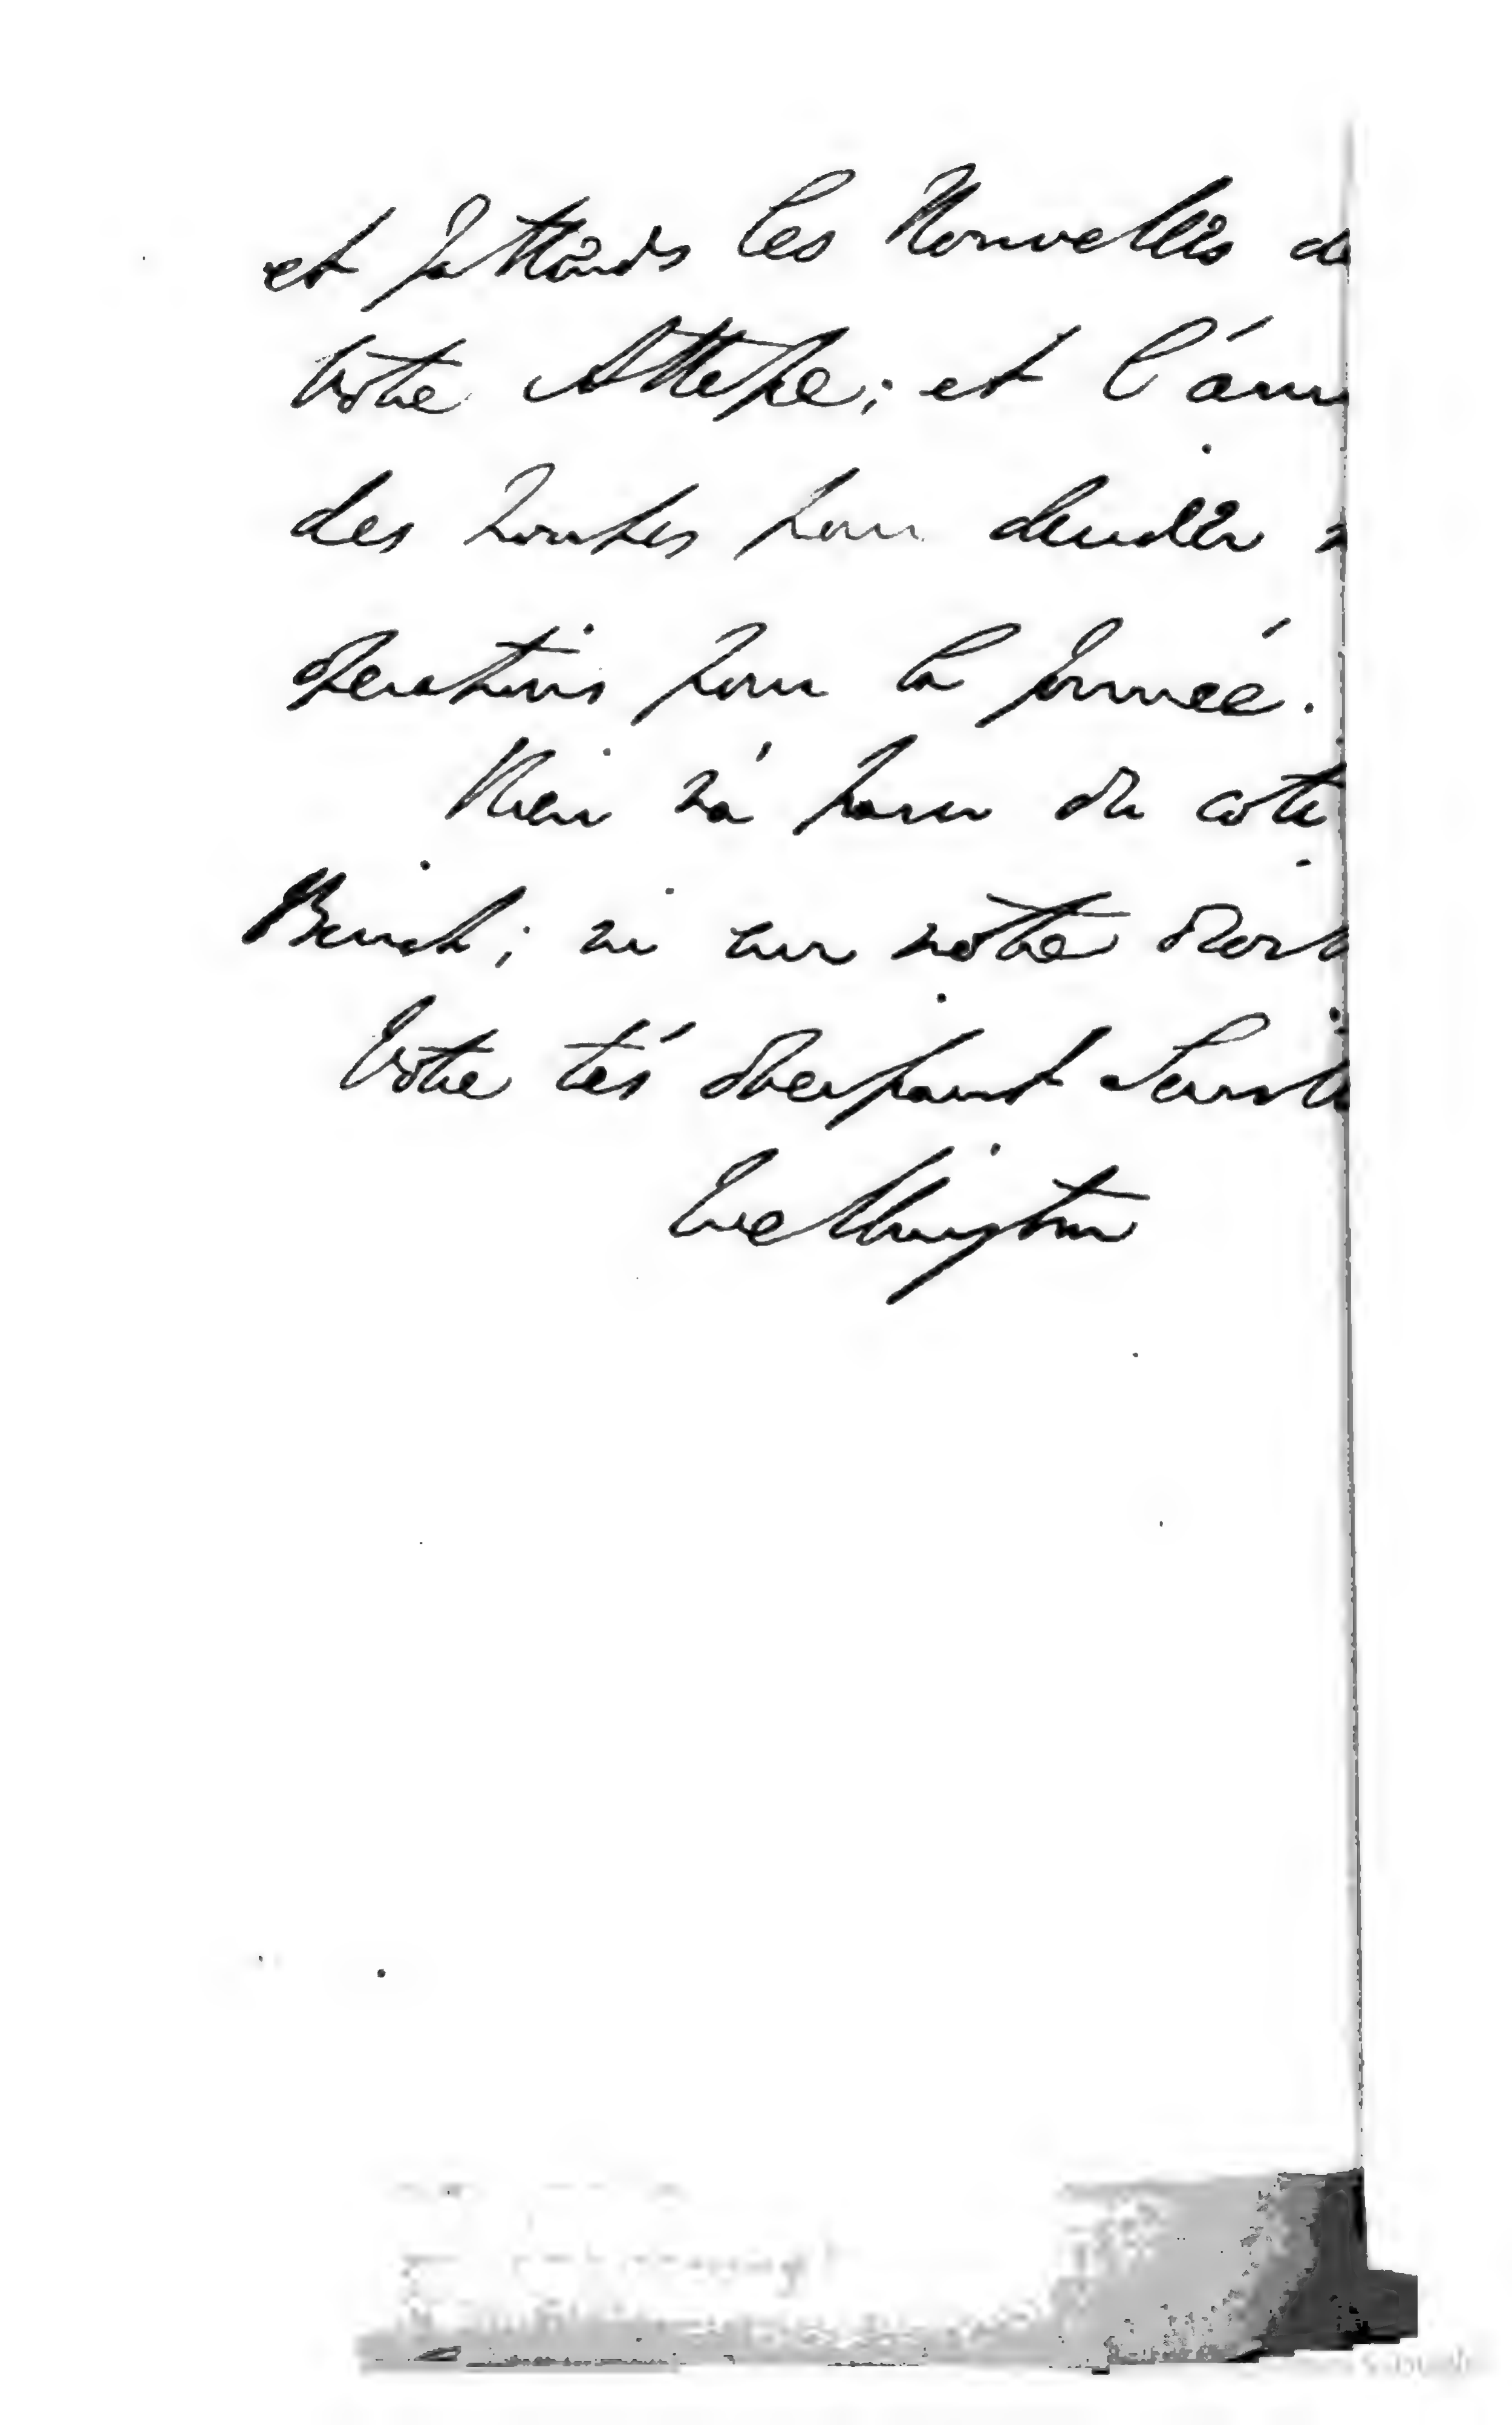 et j'attends les Nouvelles de
votre Altesse; et l'arri
des troupes pour decider m
operations pour la journée.
Rien n'a parru du coté
Binch; ni sur notre droit
Votre tés obeissant Servite
Wellington